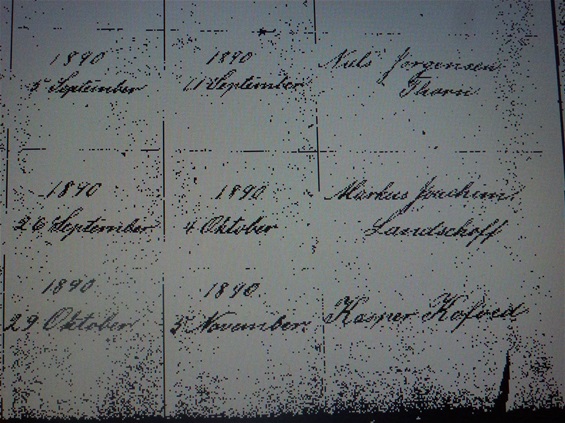 1890 1890 Niels Jörgensen
5 September 11 September Thorn
1890 1890 Markus Joachim
26 September 4 Oktober Landschoff
1890 1890
29 Oktober 5 November Kasper Kofoed